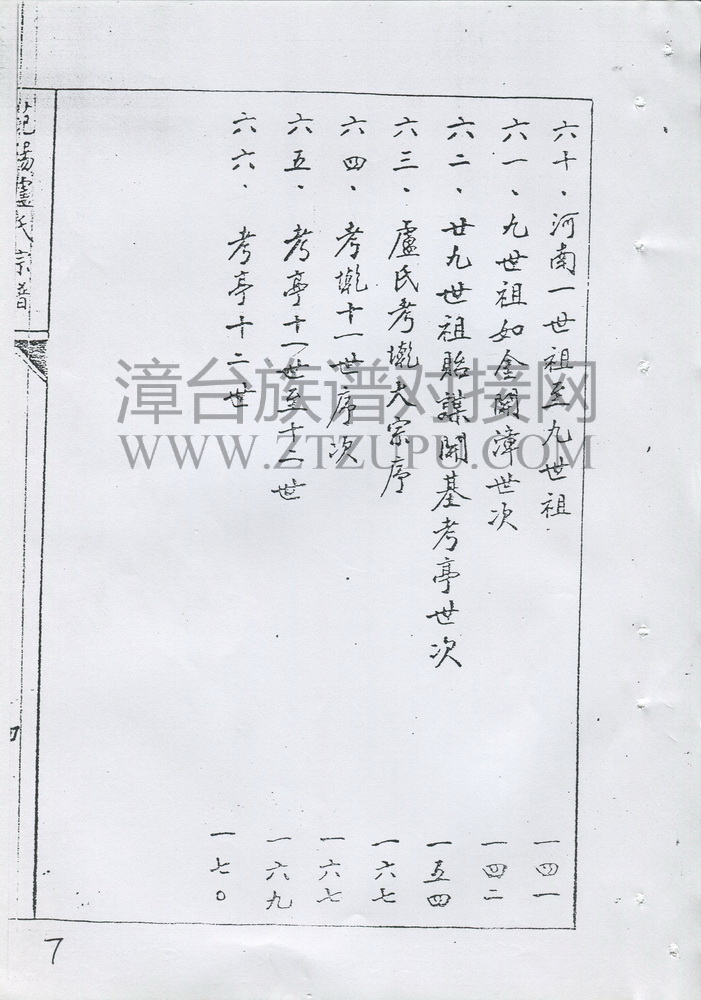 六十、河南一世祖至九世祖 一四一
六一、九世祖如金開漳世次 一四二
六二、廿九世祖貽謀開基考亭世次 一五四
六三、盧氏考壠大宗序 一六七
六四、考壠十一世序次 一六七
六五、考亭十一世至十二世 一六九
六六、考亭十二世 一七〇
范陽盧氏宗譜
四
7
漳台族谱对接网
WWW.ZTZUPU.COM